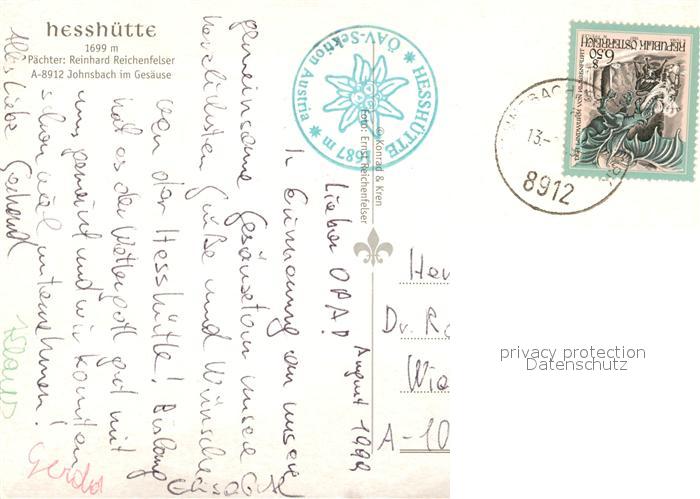 hesshütte
1699 m
Pächter: Reinhard Reichenfelser
A-8912 Johnsbach im Gesäuse
HESSHÜTTE
ÖAV-Sektion Austria
1687 m
© Konrad & Kren
Foto: Ernst Reichenfelser
REPUBLIK ÖSTERREICH
6.50
S
DER LINDWURM VON KLAGENFURT
13.-
8912
August 1999
Lieber OPAP!
In Erinnerung an unsere
gemeinsame Gesäusetour unsere
herzlichsten Grüße und Wünsche
von der Hesshütte! Bislang
hat es der Wettergott gut mit
uns gemeint und wir konnten
schon viel unternehmen!
Alles Liebe Gerhard
Elisabeth
Klaus
Gerda
Dr.
A-10
privacy protection
Datenschutz